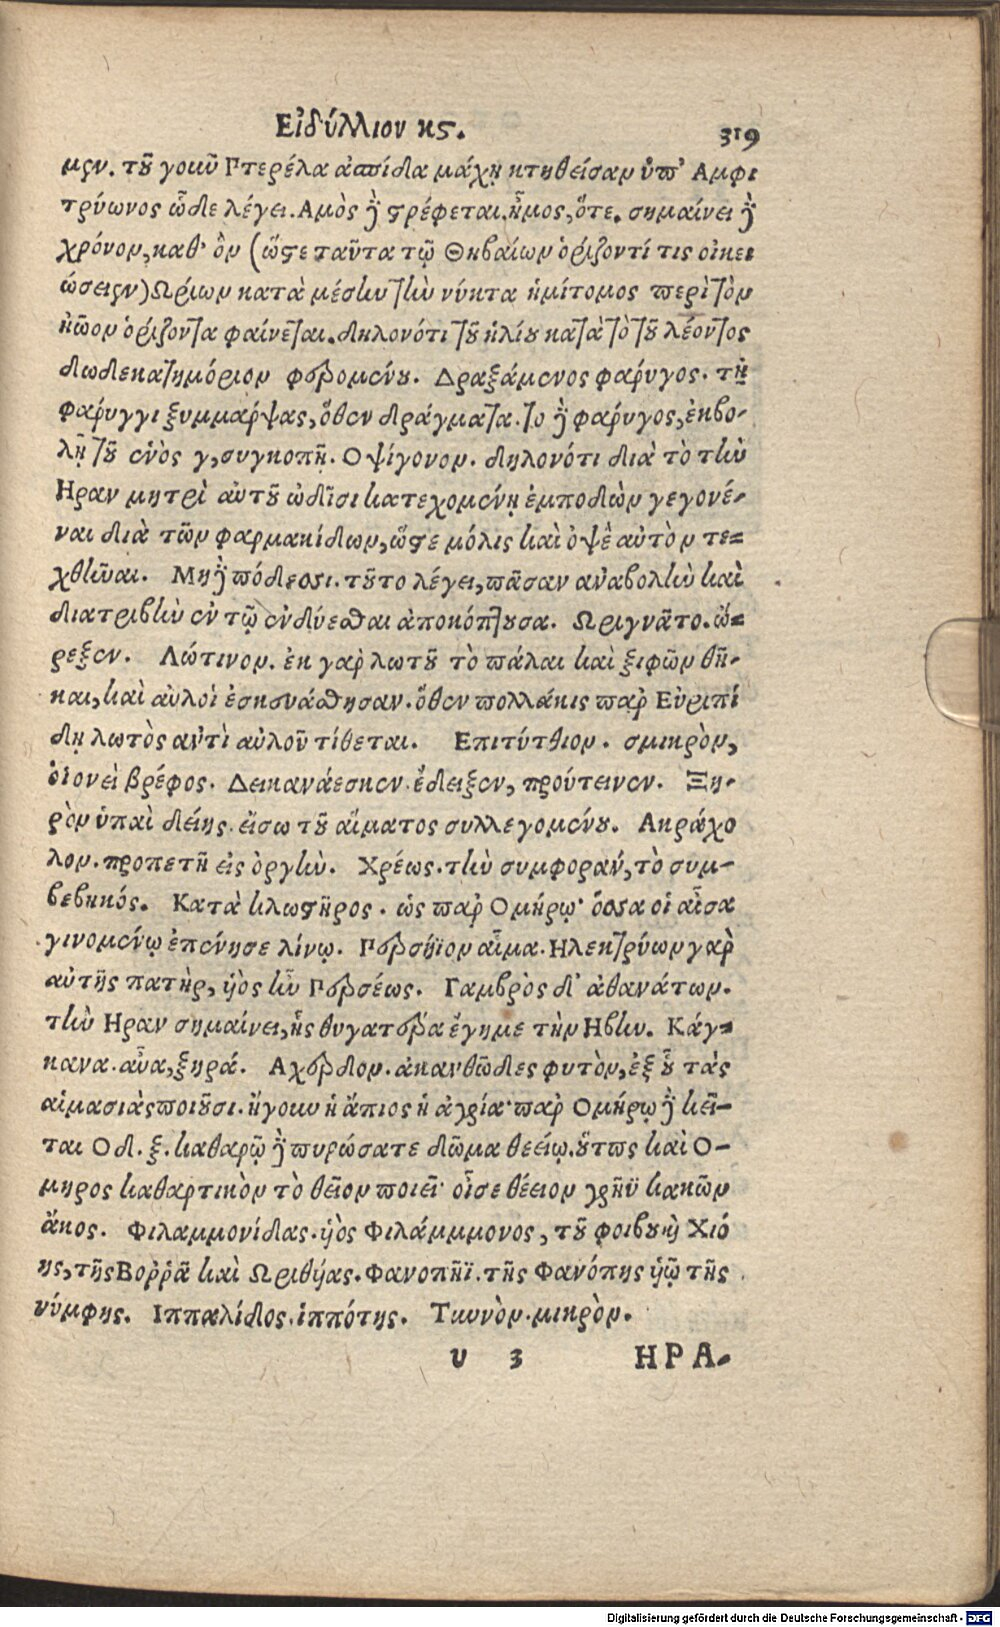 Εἰδύλλιον κϛ. 319
μϛν. τοῦ γοιυῦ Πτερέλα ἀσπίδα μάχῃ κτηθεῖσαν ὑπ' Αμφι
τρύωνος ὧδε λέγει. Αμὸς δὲ στρέφεται. ἦμος, ὅτε. σημαίνει δὲ
χρόνον, καθ' ὃν (ὥστε ταῦτα τῷ Θηβαίων ὁρίζοντί τις οἰκει
ώσειεν) Ωρίων κατὰ μέσην τὴν νύκτα ἡμίτομος περὶ τὸν
ἠῶον ὁρίζοντα φαίνεται. δηλονότι τοῦ ἡλίου κατὰ τὸ τοῦ λέοντος
δωδεκατημόριον φερομένου. Δραξάμενος φάρυγος. τῇ
φάρυγγι ξυμμάρψας, ὅθεν δράγματα. το δὲ φάρυγος, ἐκβο-
λῇ τοῦ ἑνὸς γ, συγκοπῇ. Οψίγονον. δηλονότι διὰ τὸ τὴν
Ηραν μητρὶ αὐτοῦ ὠδῖσι κατεχομένῃ ἐμποδὼν γεγονέ-
ναι διὰ τῶν φαρμακίδων, ὥστε μόλις καὶ ὀψὲ αὐτὸν τε=
χθῆναι. Μηδὲ πόδεσσι. τοῦτο λέγει, πᾶσαν ἀναβολὴν καὶ
διατριβὴν ἐν τῷ ἐνδύεσθαι ἀποκόπτουσα. Ωριγνᾶτο. ὤ=
ρεξεν. Λώτινον. ἐκ γὰρ λωτοῦ τὸ πάλαι καὶ ξιφῶν θῆ-
και, καὶ αὐλοὶ ἐσκευάσθησαν. ὅθεν πολλάκις παρ' Εὐριπί
δῃ λωτὸς αντὶ αὐλοῦ τίθεται. Επιτύτθιον. σμικρὸν,
οἱονεὶ βρέφος. Δεικανάεσκεν. ἔδειξεν, προύτεινεν. Ξη-
ρὸν ὑπαὶ δείης. εἴσω τοῦ αἵματος συλλεγομένου. Ακράχο
λον. προπετῆ εἰς ὀργὴν. Χρέως. τὴν συμφοράν, τὸ συμ-
βεβηκός. Κατὰ κλωστῆρος. ὡς παρ' Ομήρῳ· ὅσσα οἱ αἶσα
γινομένῳ ἐπένησε λίνῳ. Περσήϊον αἷμα. Ηλεκτρύων γὰρ
αὐτῆς πατὴρ, υἱὸς ἦν Περσέως. Γαμβρὸς δ' ἀθανάτων.
τὴν Ηραν σημαίνει, ἧς θυγατέρα ἔγημε τὴν Ηβην. Κάγ=
κανα. αὖα, ξηρά. Αχερδον. ἀκανθῶδες φυτὸν, ἐξ οὗ τὰς
αἱμασιὰς ποιοῦσι. ἤγουν ἡ ἄπιος ἡ ἀγρία· παρ' Ομήρῳ δὲ κεῖ-
ται Οδ. ξ. καθαρῷ δὲ πυρώσατε δῶμα θεείῳ. οὕτως καὶ Ο-
μηρος καθαρτικὸν τὸ θεῖον ποιεῖ· οἶσε θέειον γρηῢ κακῶν
ἄκος. Φιλαμμονίδας. υἱὸς Φιλάμμμονος, τοῦ φοίβου καὶ Χιό
νης, τῆς Βορρᾶ καὶ Ωριθυίας. Φανοπῆϊ. τῆς Φανόπης υἱῷ τῆς
νύμφης. Ιππαλίδος. ἱππότης. Τιυνὸν. μικρὸν.
υ 3 ΗΡΑ-
Digitalisierung gefördert durch die Deutsche Forschungsgemeinschaft - DFG